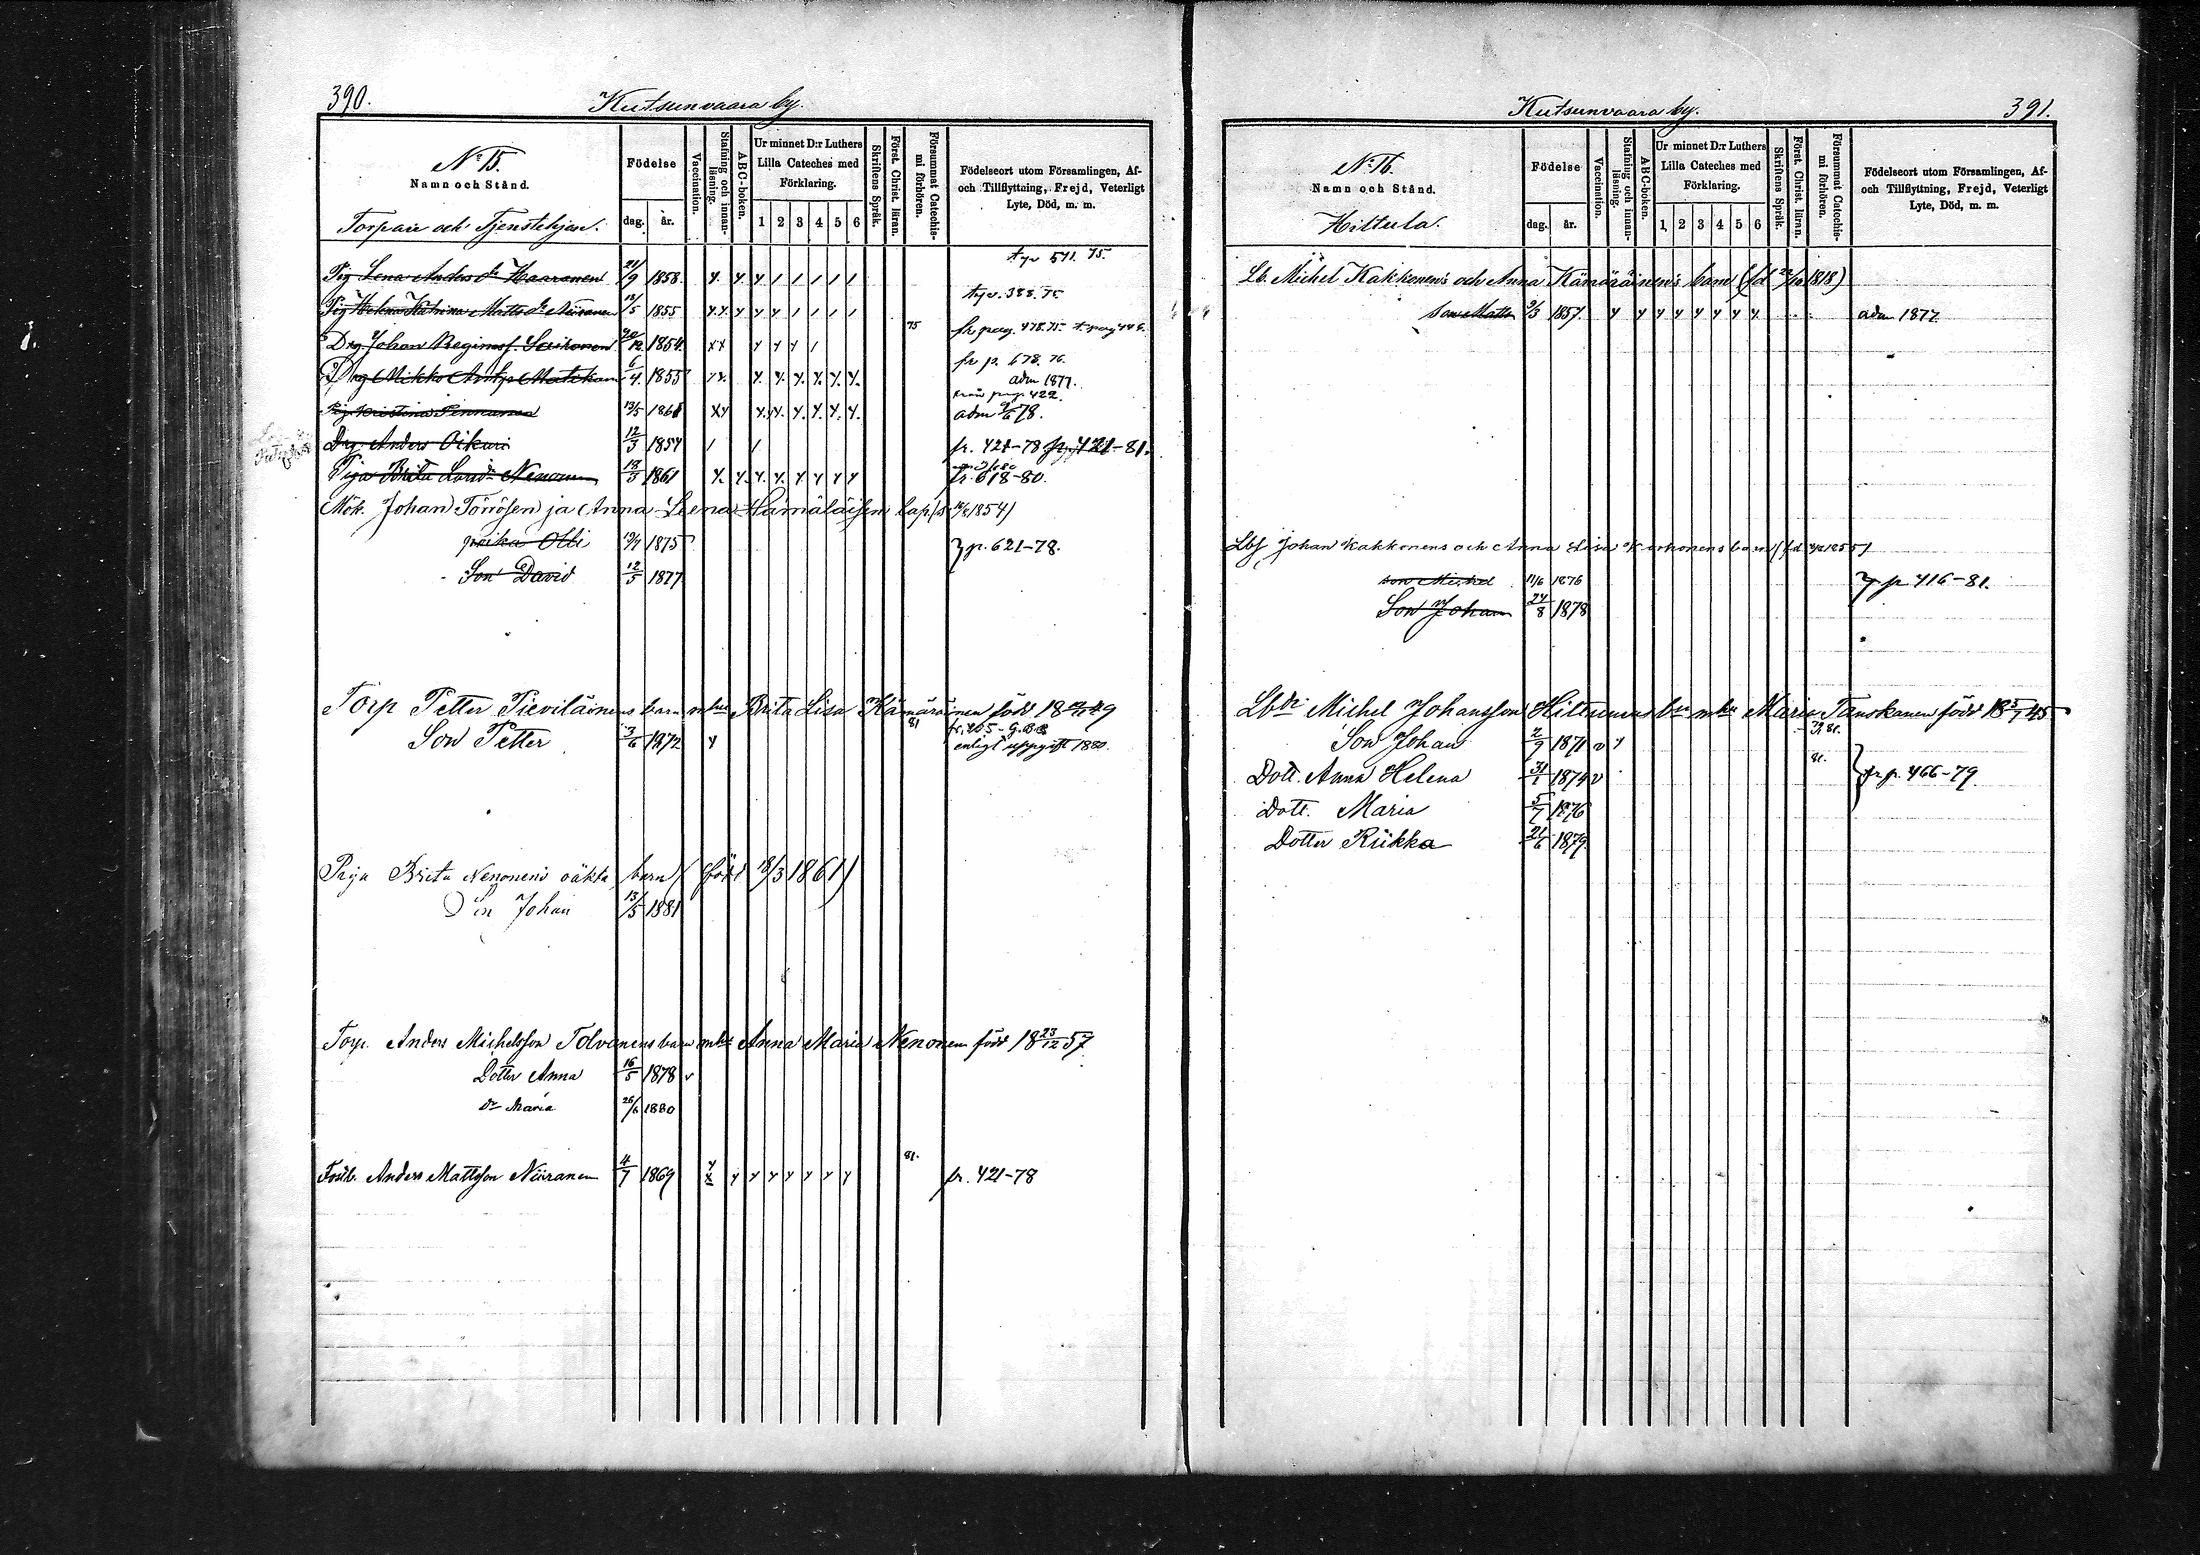 390.
Kutsunvaara by.
No 15.
Namn och Stånd.
Torpare och Tjenstehjon.
Födelse
dag.
år.
Vaccination.
Stafning och innan-läsning.
ABC-boken.
Ur minnet D:r Luthers
Lilla Cateches med
Förklaring.
1 2 3 4 5 6
Skriftens Språk.
Först. Christ. läran.
Försummat Catechis-mi förhören.
Födelseort utom Församlingen, Af-
och Tillflyttning, Frejd, Veterligt
Lyte, Död, m. m.
Pig Lena Anders dr Haaranen 21/9 1858 571. 75.
Pig Helena Katrina Matts dr Niiranen 12/5 1855 388. 75.
Drg Johan Sairanen 1854 75 fr pag. 478. 75
Drg Mikko Matikan 6/4 1855 fr p. 678. 76. adm 1877.
Pig. Kristina Pennanen 13/5 186 pag 422. adm 78.
Drg. Anders Oikari 12/3 1854 fr. 421-78 421-81.
Piga Brita Nenonen 18/3 1861 fr. 618-80.
Mök. Johan Törrösen ja Anna Leena Hämäläisen lap 1854)
poika Olli 1875 p. 621-78.
Son David 12/5 1877
Torp Petter Pieviläinens barn m hu Brita Lisa Kämäräinen född 18 49
Son Petter 7/6 1872 81 fr. 405 - enligt uppgift 1880.
Piga Brita Nenonens oäkta barn (född 18/3 1861)
Son Johan 13/5 1881
Torp. Anders Michelsson Tolvanens barn m hu Anna Maria Nenonen född 18 23/12 57
Dotter Anna 16/5 1878 v
Dr Maria 26/6 1880
Anders Mattsson Niiranen 4/7 1869 81. fr. 421-78
Kutsunvaara by.
391.
No 16.
Namn och Stånd.
Hittula.
Födelse
dag.
år.
Vaccination.
Stafning och innan-läsning.
ABC-boken.
Ur minnet D:r Luthers
Lilla Cateches med
Förklaring.
1 2 3 4 5 6
Skriftens Språk.
Först. Christ. läran.
Försummat Catechis-mi förhören.
Födelseort utom Församlingen, Af-
och Tillflyttning, Frejd, Veterligt
Lyte, Död, m. m.
Lb. Michel Kakkonens och Anna Kämäräinens barn (fd 22/10 1818)
son Matts 9/3 1857 adm 1877
Lbf Johan Kakkonens och Anna Lisa Korhonens barn (fd 1855)
son Michel 11/6 1876 p 416-81.
Son Johan 24/8 1878
Lbdi Michel Johansson Hiltunens bn m hu Maria Tanskanen född 18 5/1 45
Son Johan 2/9 1871 v 81.
Dott. Anna Helena 31/1 1874 v 81. fr p. 466-79.
Dott. Maria 5/7 1876
Dotter Riikka 21/6 1879